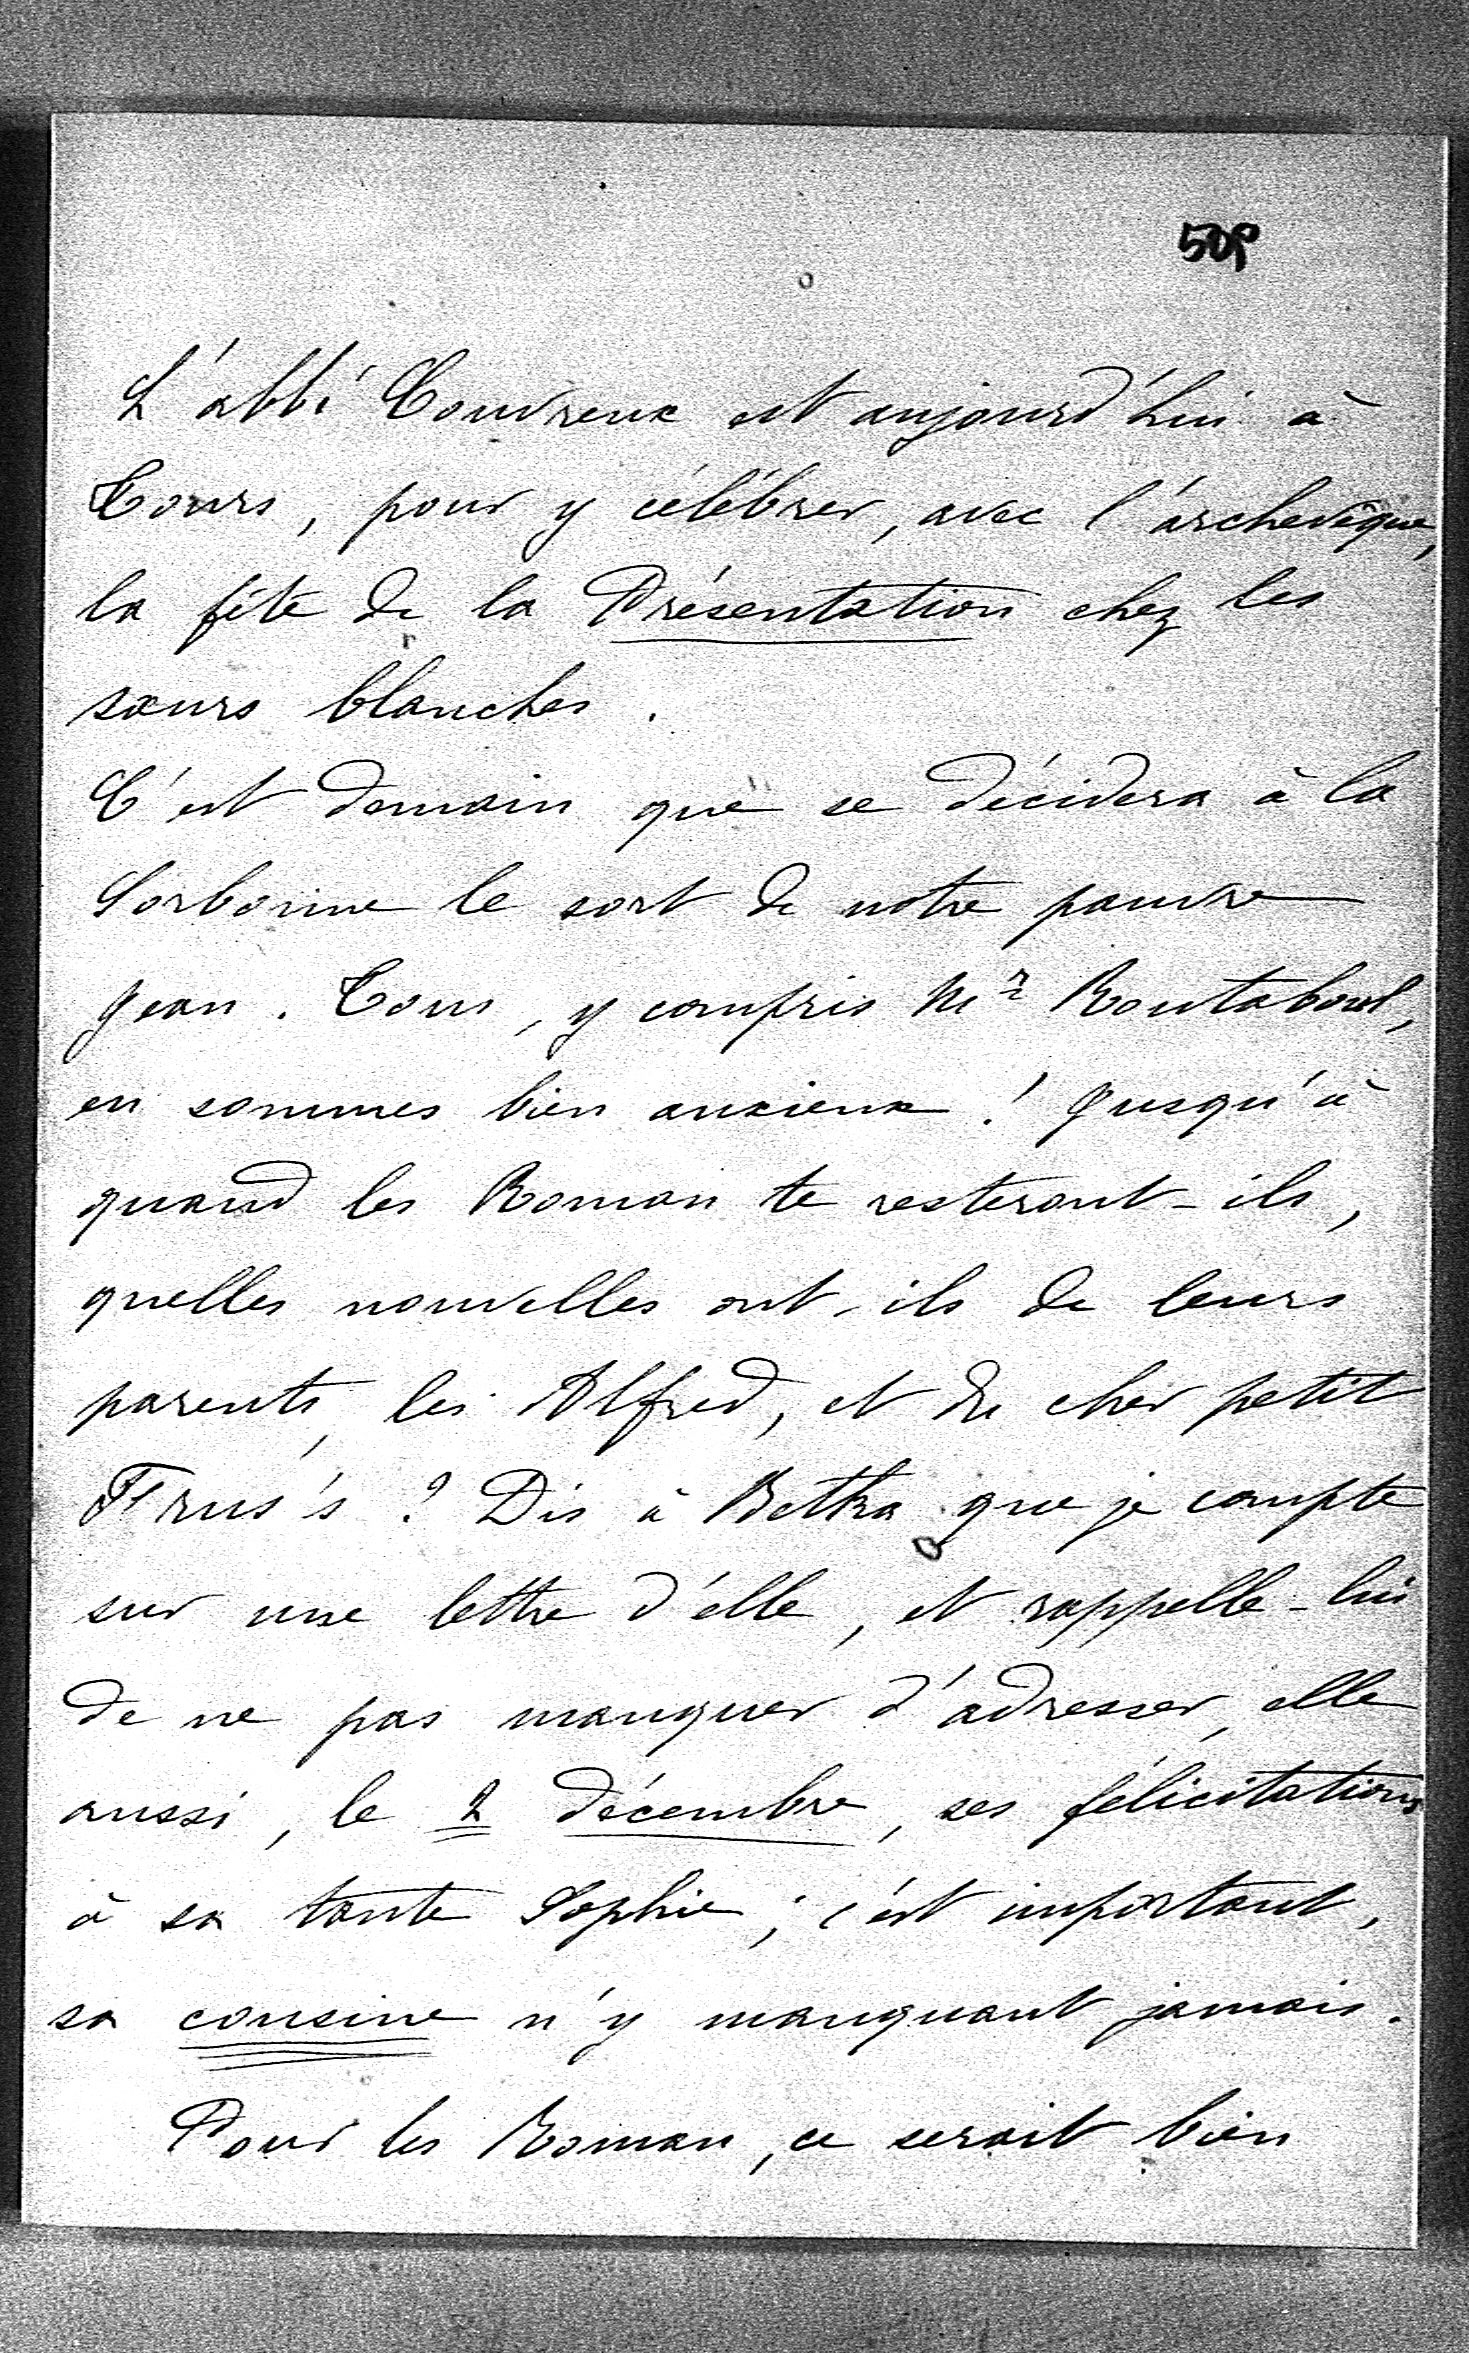 509
L'abbé Couvreux est aujourd'hui à
Tours, pour y célébrer, avec l'archevêque,
la fête de la Présentation chez les
sœurs blanches.
C'est demain que se décidera à la
Sorbonne le sort de notre pauvre
Jean. Tous, y compris Mr Routaboul,
en sommes bien anxieux ! Jusqu'à
quand les Roman te resteront-ils,
quelles nouvelles ont-ils de leurs
parents, les Alfred, et du cher petit
? Dis à Betka que je compte
sur une lettre d'elle, et rappelle-lui
de ne pas manquer d'adresser, elle
aussi, le 2 décembre, ses félicitations
à sa tante Sophie; c'est important,
sa cousine n'y manquant jamais.
Pour les Roman, ce serait bien